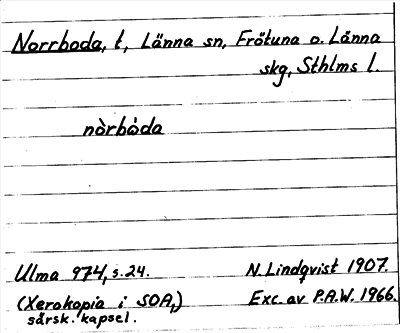 Norrboda, t, Länna sn, Frötuna o. Länna
skg, Sthlms l.
nòrbòda
Ulma 974, s. 24. N. Lindqvist 1907.
(Xerokopia i SOA,) Exc. av P.A.W. 1966.
särsk. kapsel.